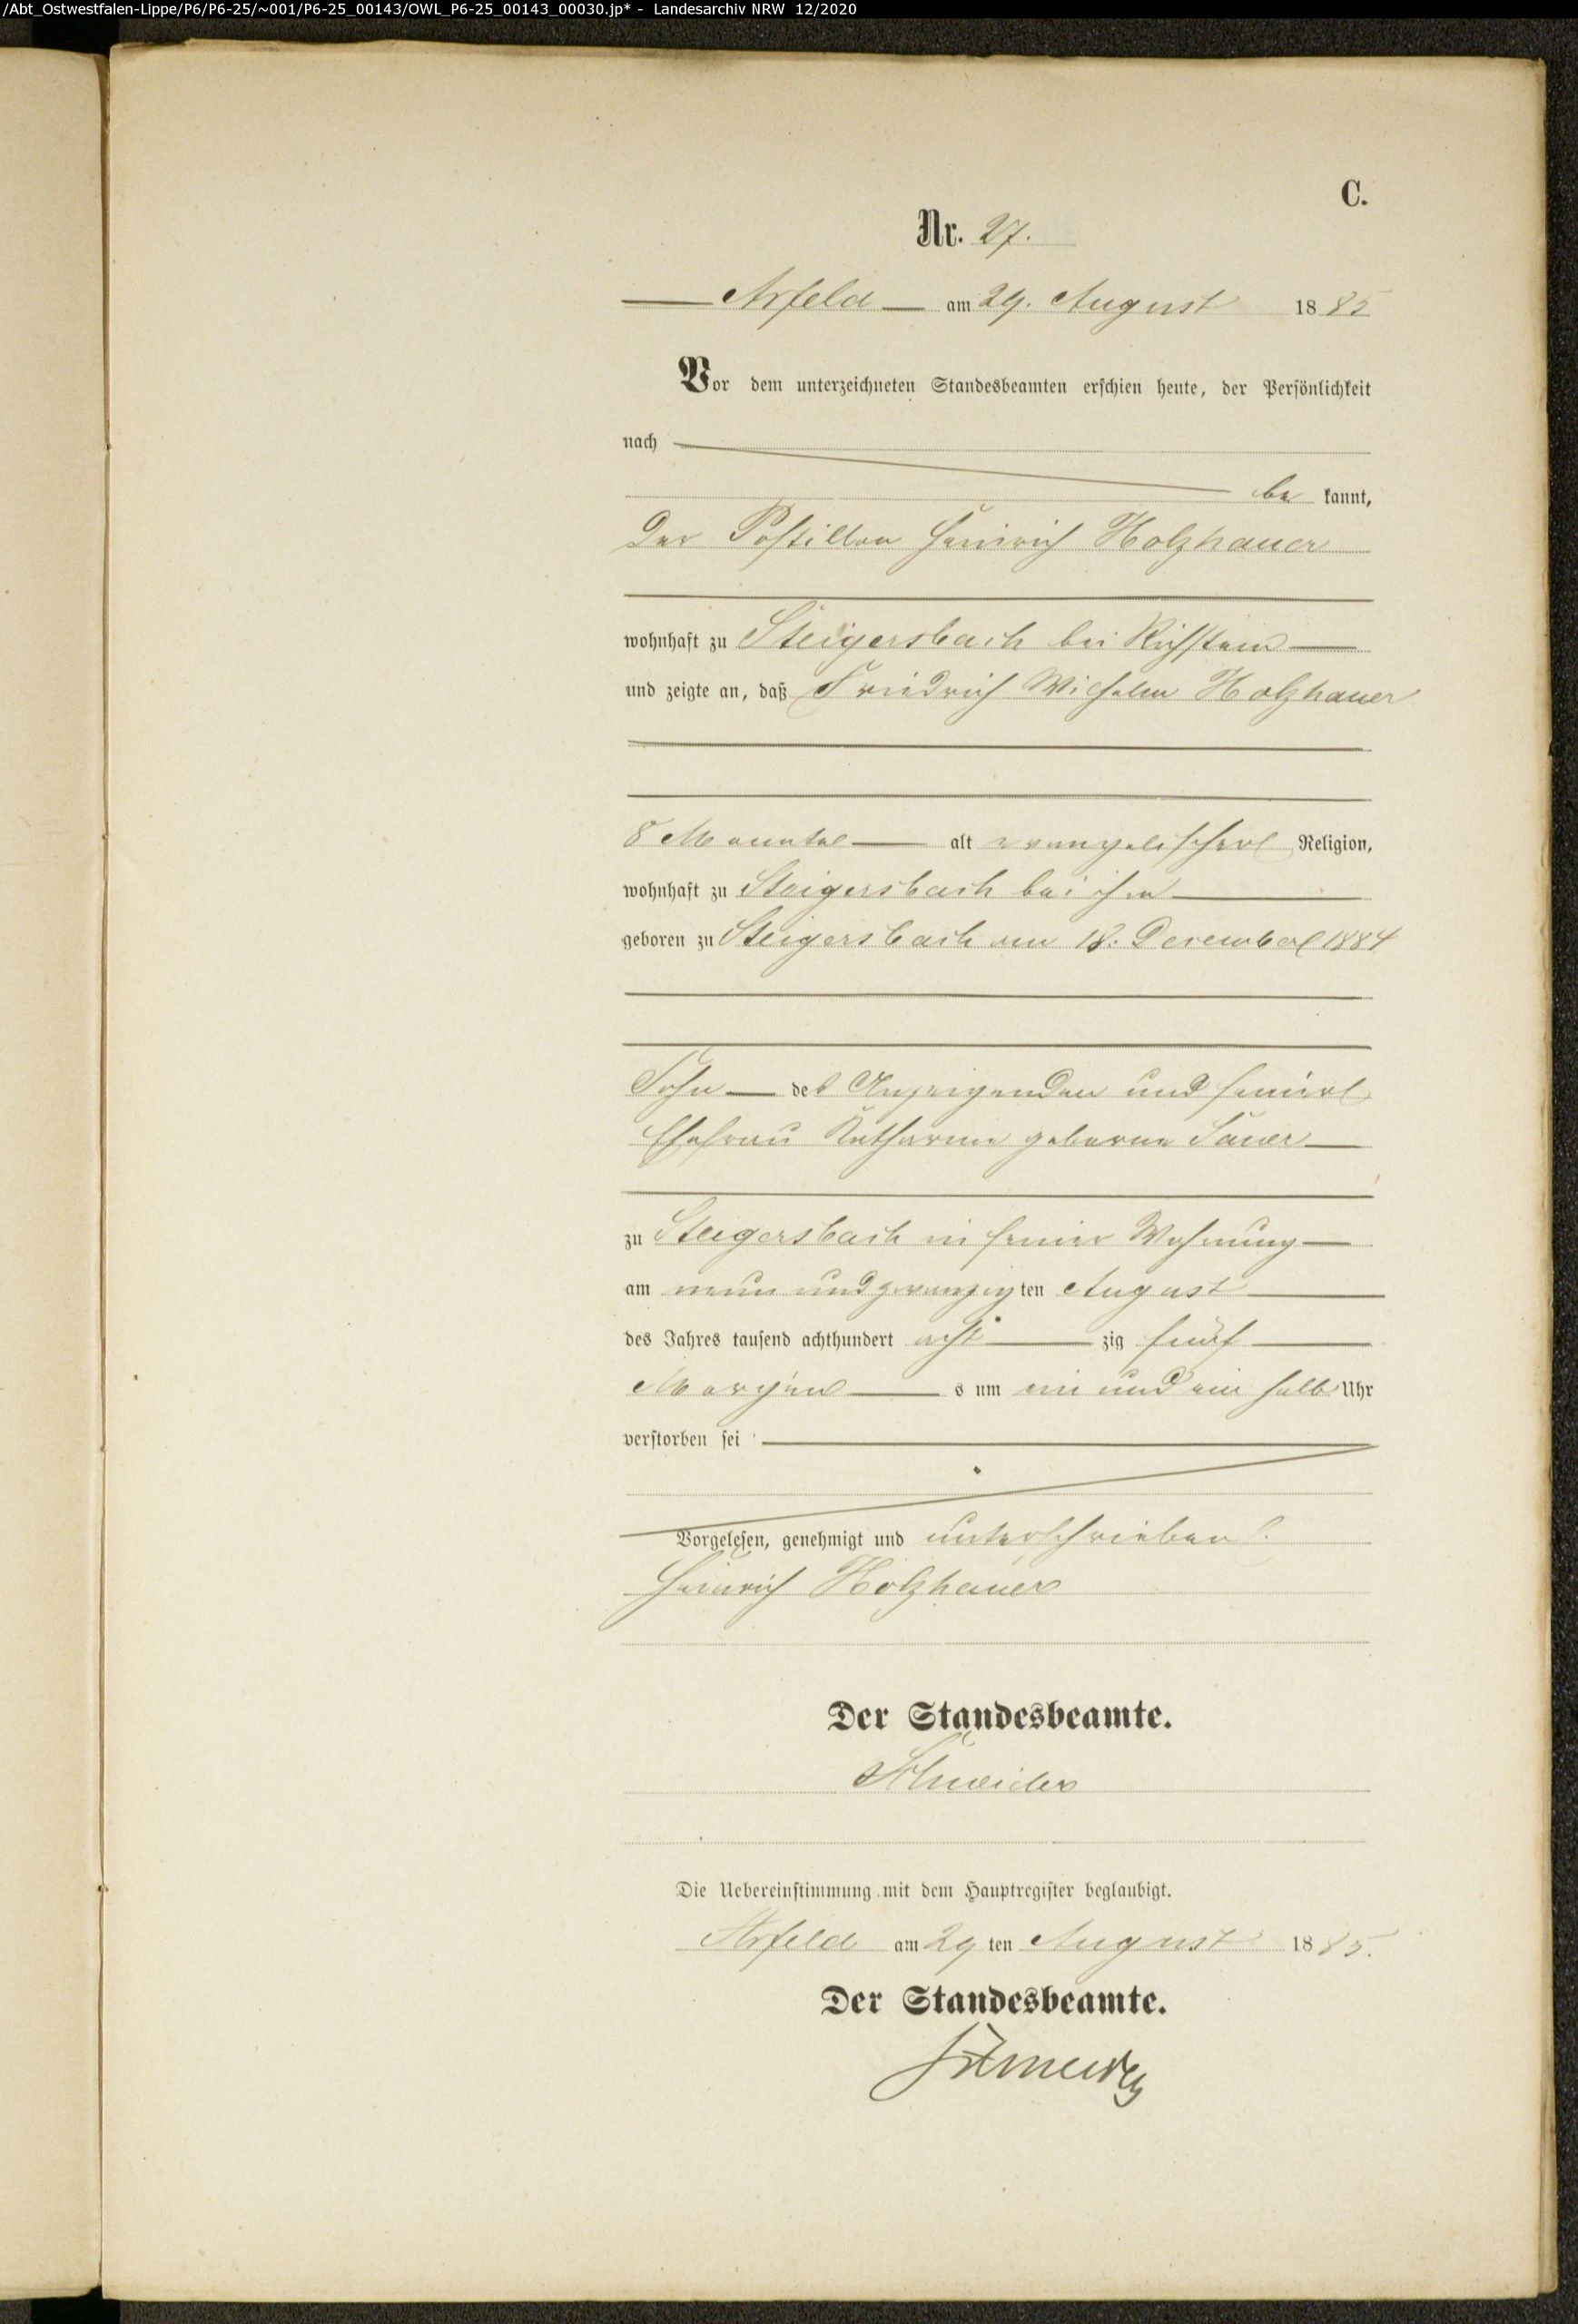 /Abt_Ostwestfalen-Lippe/P6/P6-25/~001/P6-25_00143/OWL_P6-25_00143_00030.jp* - Landesarchiv NRW 12/2020
C.
Nr. 27.
Arfeld am 29. August 1885
Vor dem unterzeichneten Standesbeamten erschien heute, der Persönlichkeit
nach
be kannt,
der Postillon Heinrich Holzhauer
wohnhaft zu Steigersbach bei Richstein
und zeigte an, daß Friedrich Wilhelm Holzhauer
8 Monate alt evangelischer Religion,
wohnhaft zu Steigersbach bei ihm
geboren zu Steigersbach am 18. December 1884
Sohn des Anzeigenden und seiner
Ehefrau Katharine geborne Sauer
zu Steigersbach in seiner Wohnung
am neun und zwanzig ten August
des Jahres tausend achthundert acht zig fünf
Morgen s um ein und ein halb Uhr
verstorben sei
Vorgelesen, genehmigt und unterschrieben.
Heinrich Holzhauer
Der Standesbeamte.
Schneider
Die Uebereinstimmung mit dem Hauptregister beglaubigt.
Arfeld am 29 ten August 1885.
Der Standesbeamte.
Schneider